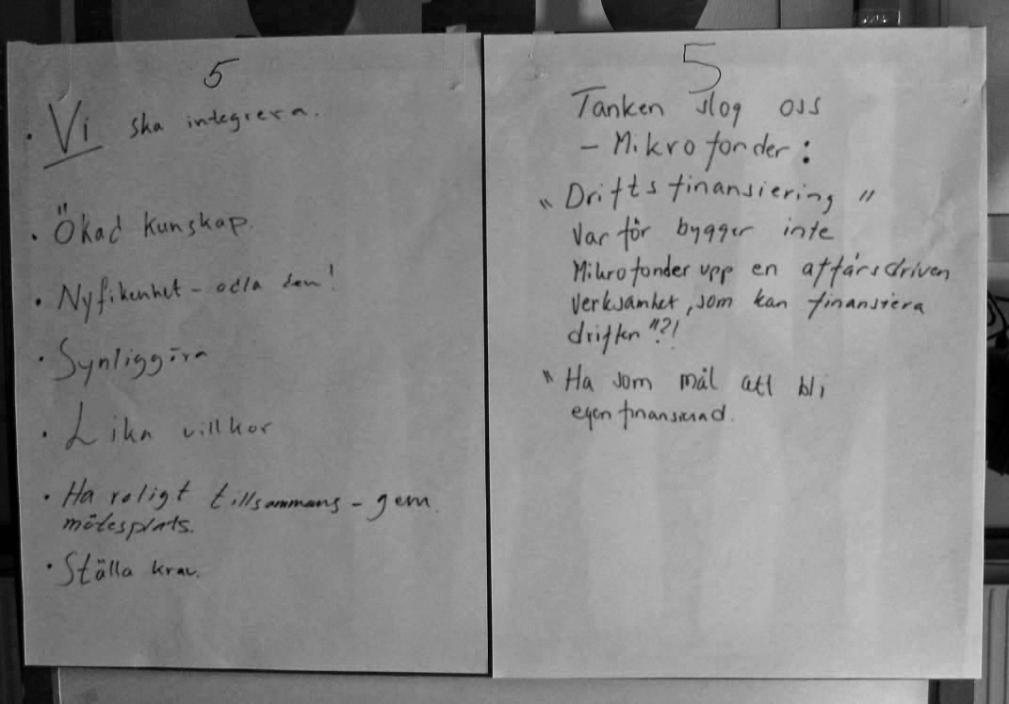 5
• Vi ska integrera.
• Ökad kunskap.
• Nyfikenhet - odla den!
• Synliggöra
• Lika villkor
• Ha roligt tillsammans - gem.
mötesplats.
• Ställa krav.
5
Tanken slog oss
- Mikrofonder:
"Driftsfinansiering"
Varför bygger inte
Mikrofonder upp en affärsdriven
verksamhet, som kan finansiera
driften"?!
" Ha som mål att bli
egenfinansierad.